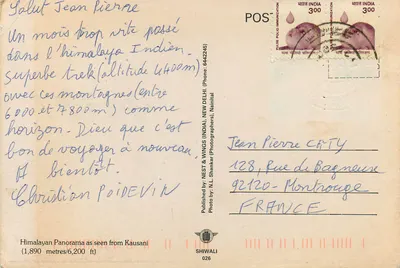 Salut Jean Pierre
Un mois trop vite passé
dans l'himalaya Indien.
Superbe trek (altitude 4400m)
avec ces montagnes (entre
6000 et 7800m) comme
horizon. Dieu que c'est
bon de voyager à nouveau,
A bientôt.
Christian POIDEVIN
Himalayan Panorama as seen from Kausani
(1,890 metres/6,200 ft)
Published by: NEST & WINGS (INDIA), NEW DELHI. (Phone: 6442245)
Photo by: N.L. Shankar (Photographers), Nainital
SHIWALI
028
POST
भारत INDIA
3.00
भारत INDIA
3.00
Jean Pierre CATY
128, Rue de Bagneux
92120 - Montrouge
FRANCE